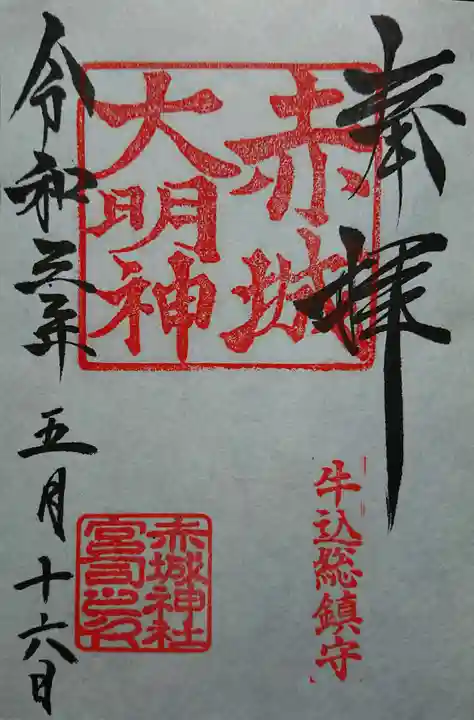 奉拝
赤城
大明神
牛込総鎮守
赤城神社
宮司之印
令和三年五月十六日